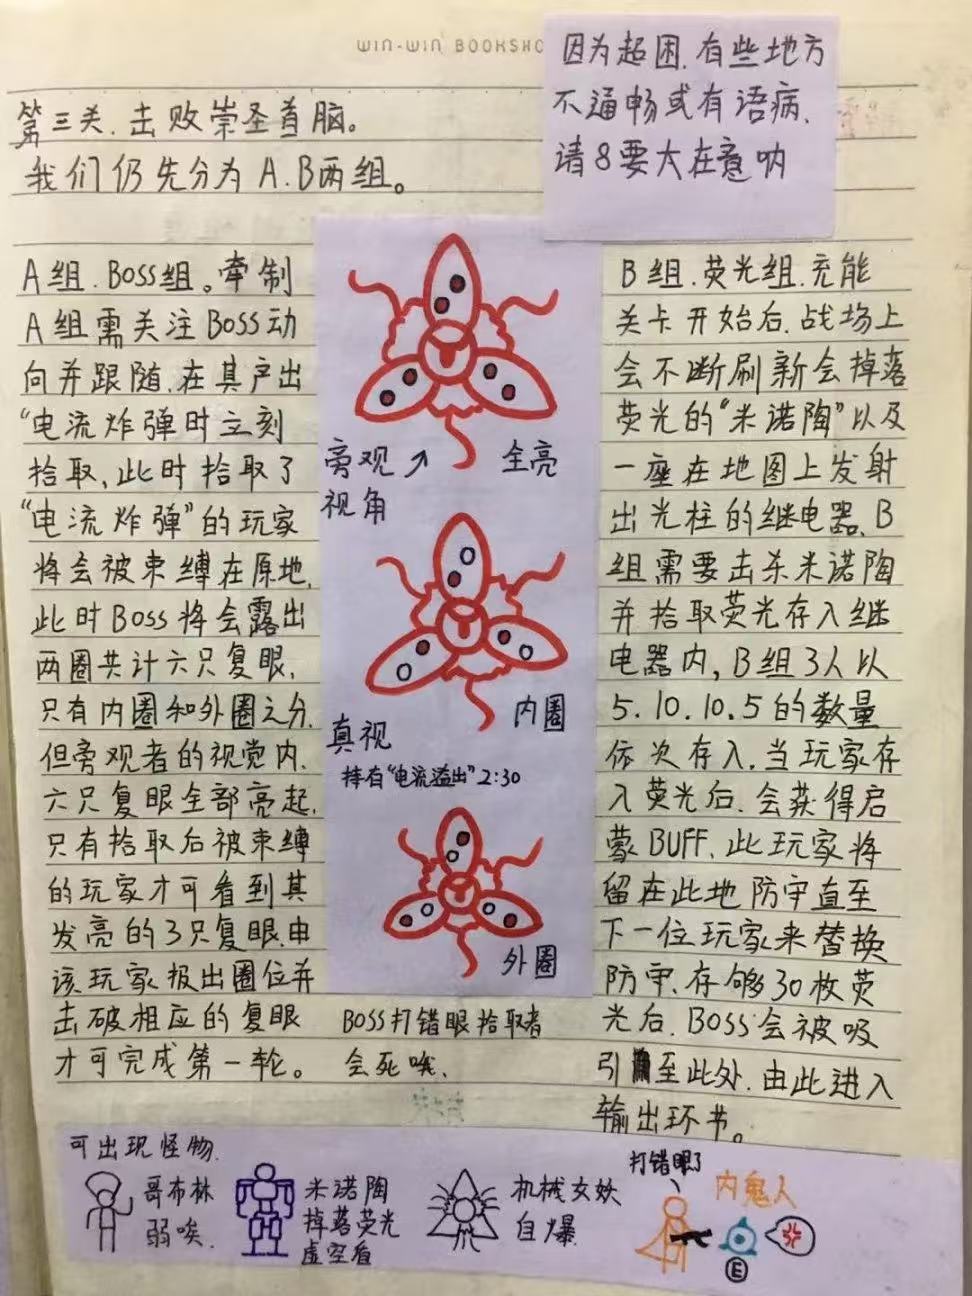 WIN-WIN BOOKSHO
因为超困.有些地方
不逼畅或有语病.
请8要大在意呐
第三关.击败崇圣首脑。
我们仍先分为A.B两组。
A组.BOSS组。牵制
A组需关注BOSS动
向并跟随.在其产出
“电流炸弹时立刻
拾取,此时拾取了
“电流炸弹”的玩家
将会被束缚在原地.
此时BOSS将会露出
两圈共计六只复眼.
只有内圈和外圈之分.
但旁观者的视觉内.
六只复眼全部亮起.
只有拾取后被束缚
的玩家才可看到其
发亮的3只复眼.由
该玩家报出圈位并
击破相应的复眼
才可完成第一轮。
旁观
视角
全亮
内圈
真视
持有“电流溢出”2:30
外圈
BOSS打错眼拾取者
会死哦.
B组.荧光组.充能
关卡开始后.战场上
会不断刷新会掉落
荧光的“米诺陶”以及
一座在地图上发射
出光柱的继电器.B
组需要击杀米诺陶
并拾取荧光存入继
电器内,B组3人以
5.10.10.5的数量
依次存入.当玩家存
入荧光后.会获得启
蒙BUFF.此玩家将
留在此地防守直至
下一位玩家来替换
防守.存够30枚荧
光后.BOSS会被吸
引至此处.由此进入
输出环节。
可出现怪物.
哥布林
弱唉.
米诺陶
掉落荧光
虚空盾
机械女妖
自爆
打错眼了
内鬼人
E